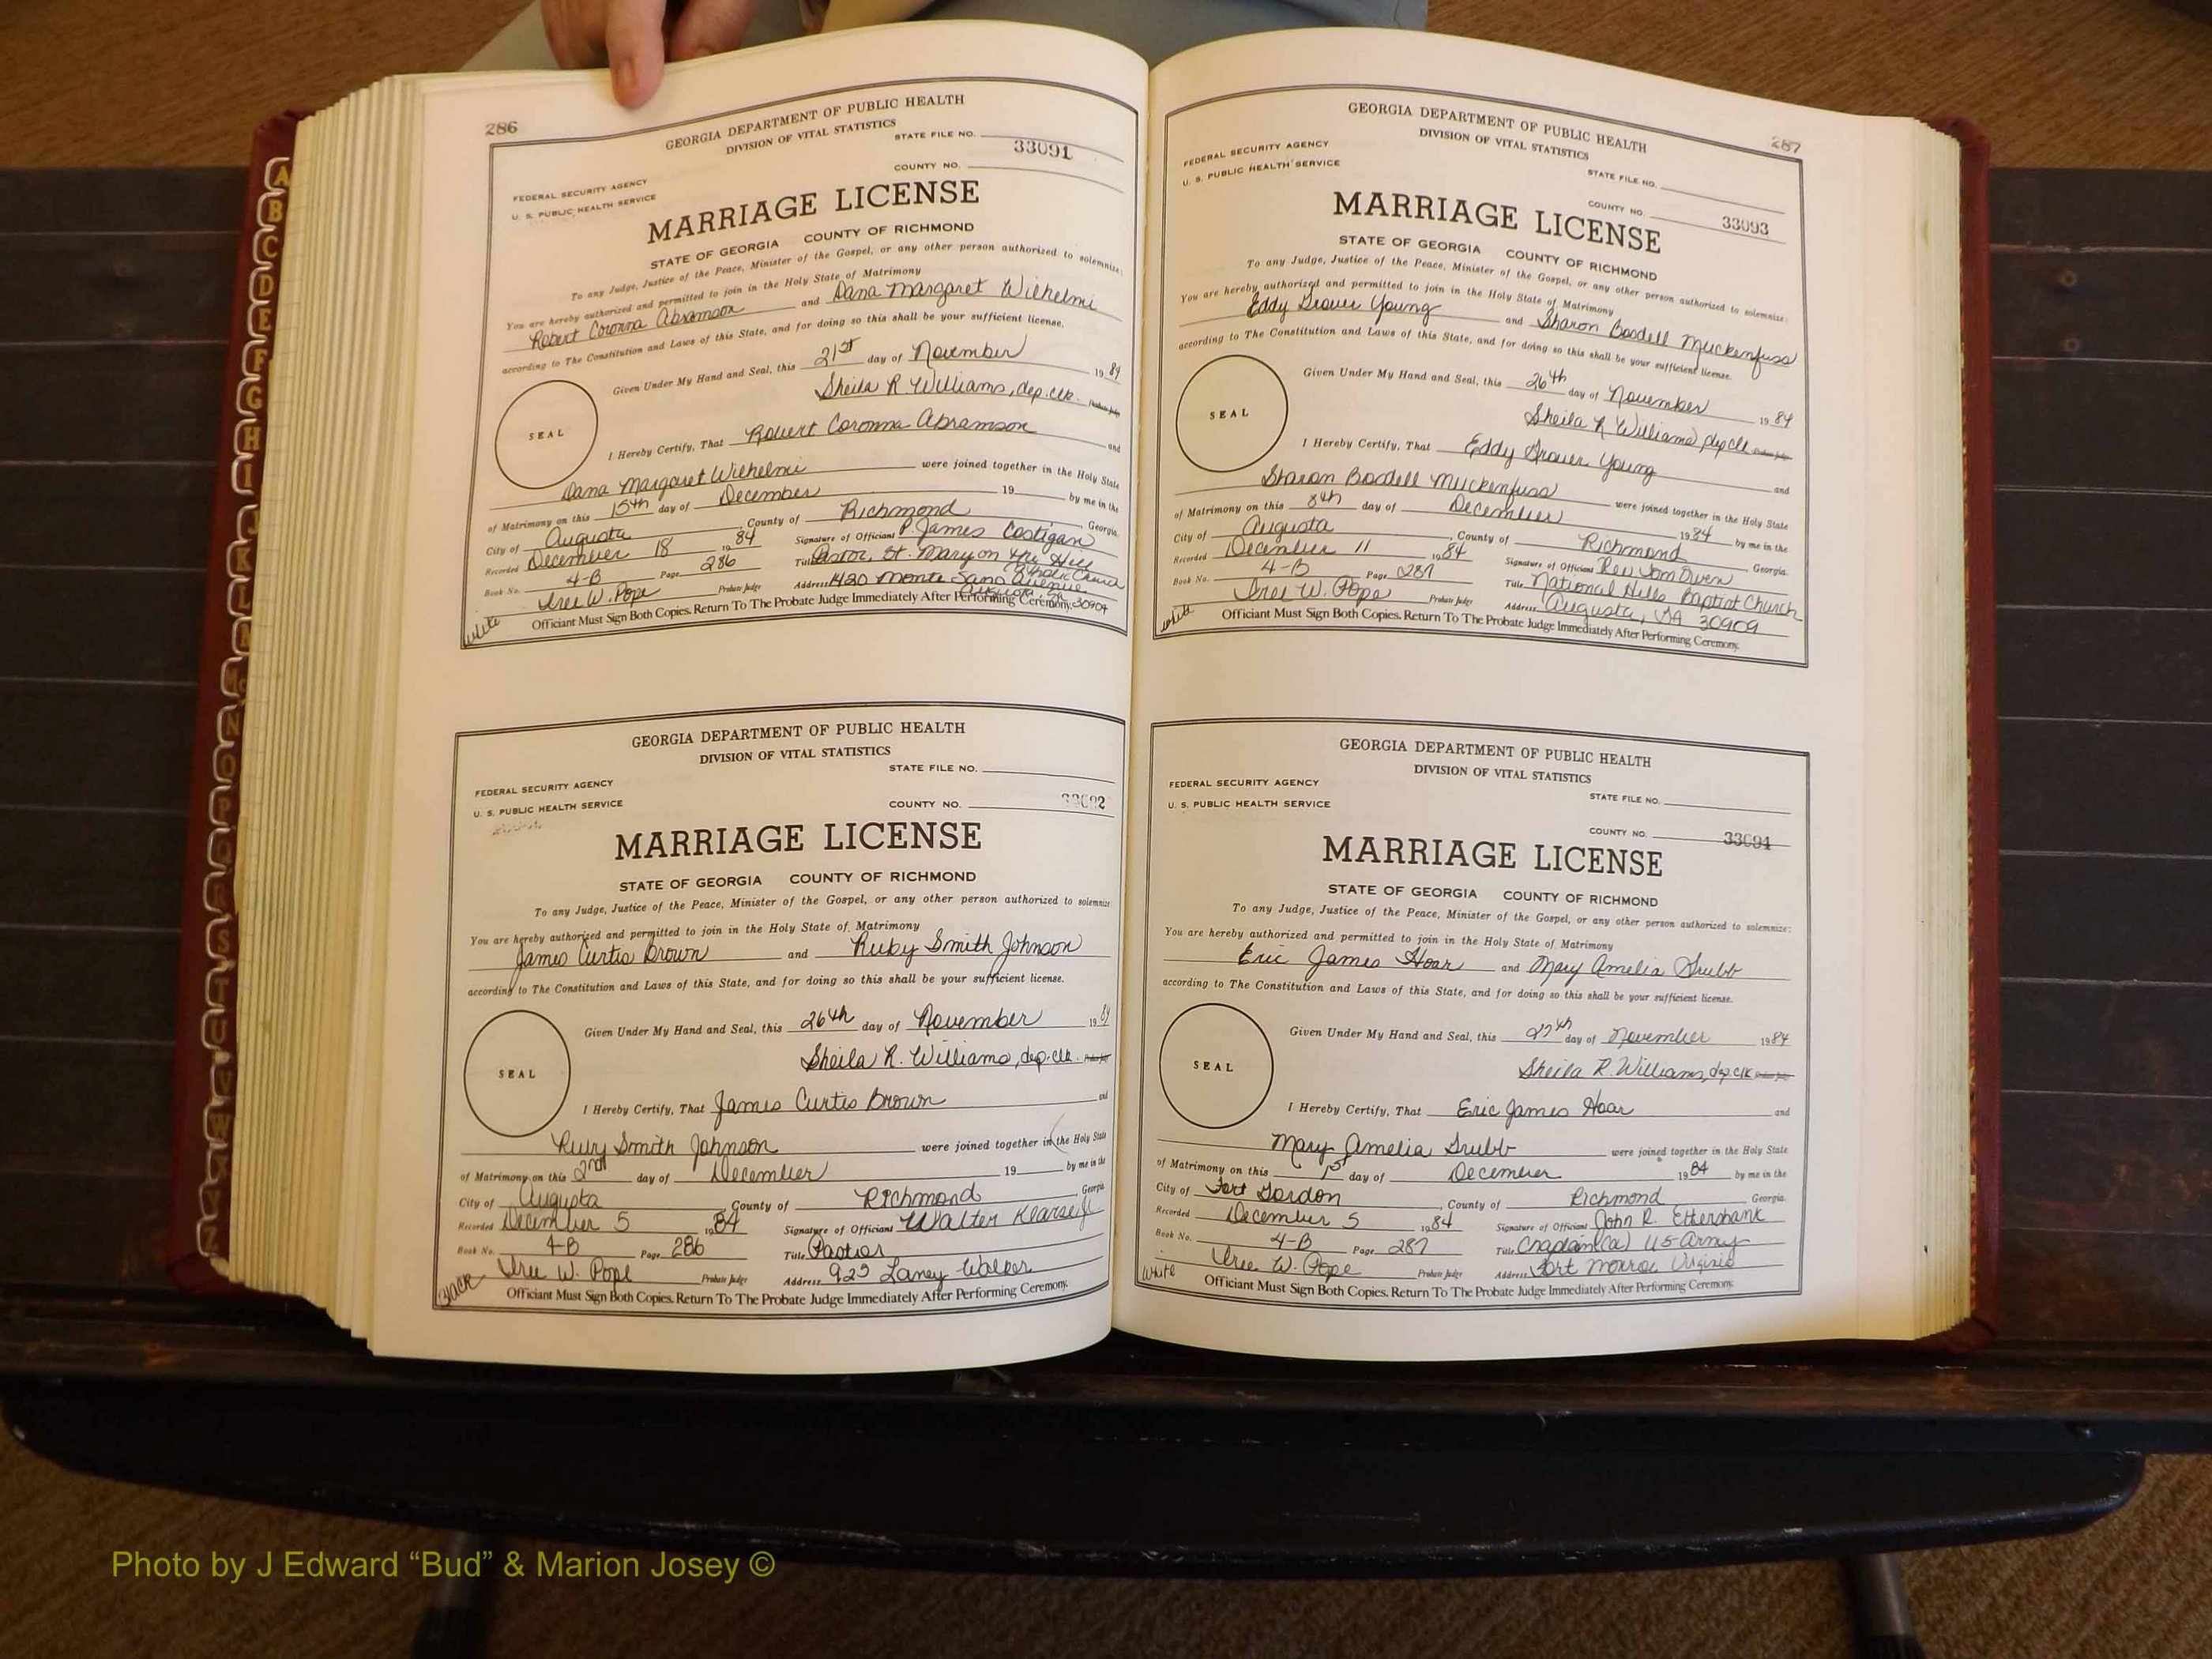 286
GEORGIA DEPARTMENT OF PUBLIC HEALTH
DIVISION OF VITAL STATISTICS
STATE FILE NO.
33091
COUNTY NO.
FEDERAL SECURITY AGENCY
U. S. PUBLIC HEALTH SERVICE
MARRIAGE LICENSE
STATE OF GEORGIA COUNTY OF RICHMOND
To any Judge, Justice of the Peace, Minister of the Gospel, or any other person authorized to solemnize:
You are hereby authorized and permitted to join in the Holy State of Matrimony
Robert Coronna Abramson and Dana Margaret Wilhelmi
according to The Constitution and Laws of this State, and for doing so this shall be your sufficient license.
Given Under My Hand and Seal, this 21st day of November 1984
Sheila R. Williams, dep. clk. Probate Judge
SEAL
I Hereby Certify, That Robert Coronna Abramson and
Dana Margaret Wilhelmi were joined together in the Holy State
of Matrimony on this 15th day of December 19 by me in the
City of Augusta, County of Richmond, Georgia.
Recorded December 18 1984 Signature of Official P. James Costigan
Book No. 4-B Page 286 Title Pastor, St. Mary on the Hill Catholic Church
Address 1420 Monte Sano Avenue
Augusta, Ga. 30904
Iree W. Pope Probate Judge
Officiant Must Sign Both Copies. Return To The Probate Judge Immediately After Performing Ceremony.
white
GEORGIA DEPARTMENT OF PUBLIC HEALTH
DIVISION OF VITAL STATISTICS
STATE FILE NO.
FEDERAL SECURITY AGENCY
U. S. PUBLIC HEALTH SERVICE
COUNTY NO. 33092
MARRIAGE LICENSE
STATE OF GEORGIA COUNTY OF RICHMOND
To any Judge, Justice of the Peace, Minister of the Gospel, or any other person authorized to solemnize
You are hereby authorized and permitted to join in the Holy State of Matrimony
James Curtis Brown and Ruby Smith Johnson
according to The Constitution and Laws of this State, and for doing so this shall be your sufficient license.
Given Under My Hand and Seal, this 26th day of November 1984
Sheila R. Williams, dep. clk. Probate Judge
SEAL
I Hereby Certify, That James Curtis Brown and
Ruby Smith Johnson were joined together in the Holy State
of Matrimony on this 2nd day of December 19 by me in the
City of Augusta, County of Richmond, Georgia
Recorded December 5 1984 Signature of Official Walter Kearse Jr
Book No. 4-B Page 286 Title Pastor
Iree W. Pope Probate Judge Address 925 Laney Walker
Officiant Must Sign Both Copies. Return To The Probate Judge Immediately After Performing Ceremony.
Black
287
GEORGIA DEPARTMENT OF PUBLIC HEALTH
DIVISION OF VITAL STATISTICS
FEDERAL SECURITY AGENCY
U. S. PUBLIC HEALTH SERVICE
STATE FILE NO.
COUNTY NO. 33093
MARRIAGE LICENSE
STATE OF GEORGIA COUNTY OF RICHMOND
To any Judge, Justice of the Peace, Minister of the Gospel, or any other person authorized to solemnize:
You are hereby authorized and permitted to join in the Holy State of Matrimony
Eddy Grover Young and Sharon Bordell Muckenfuss
according to The Constitution and Laws of this State, and for doing so this shall be your sufficient license.
Given Under My Hand and Seal, this 26th day of November 1984
Sheila R Williams, dep clk Probate Judge
SEAL
I Hereby Certify, That Eddy Grover Young and
Sharon Bordell Muckenfuss were joined together in the Holy State
of Matrimony on this 8th day of December 1984 by me in the
City of Augusta, County of Richmond Georgia.
Recorded December 11 1984 Signature of Official Rev Tom Owen
Book No. 4-B Page 287 Title National Hills Baptist Church
Iree W. Pope Probate Judge Address Augusta, GA 30909
Officiant Must Sign Both Copies. Return To The Probate Judge Immediately After Performing Ceremony.
white
GEORGIA DEPARTMENT OF PUBLIC HEALTH
DIVISION OF VITAL STATISTICS
FEDERAL SECURITY AGENCY
U. S. PUBLIC HEALTH SERVICE
STATE FILE NO.
COUNTY NO. 33094
MARRIAGE LICENSE
STATE OF GEORGIA COUNTY OF RICHMOND
To any Judge, Justice of the Peace, Minister of the Gospel, or any other person authorized to solemnize:
You are hereby authorized and permitted to join in the Holy State of Matrimony
Eric James Hoar and Mary Amelia Grubb
according to The Constitution and Laws of this State, and for doing so this shall be your sufficient license.
Given Under My Hand and Seal, this 27th day of November 1984
Sheila R. Williams, dep. clk Probate Judge
SEAL
I Hereby Certify, That Eric James Hoar and
Mary Amelia Grubb were joined together in the Holy State
of Matrimony on this 1st day of December 1984 by me in the
City of Fort Gordon, County of Richmond Georgia.
Recorded December 5 1984 Signature of Official John R. Ettershank
Book No. 4-B Page 287 Title Chaplain US Army
Iree W. Pope Probate Judge Address Fort Monroe Virginia
Officiant Must Sign Both Copies. Return To The Probate Judge Immediately After Performing Ceremony.
White
A
B
C
D
E
F
G
H
I
J
K
L
M
Mc
N
O
P
Q
R
S
T
U
V
W
Y
Z
Photo by J Edward “Bud” & Marion Josey ©